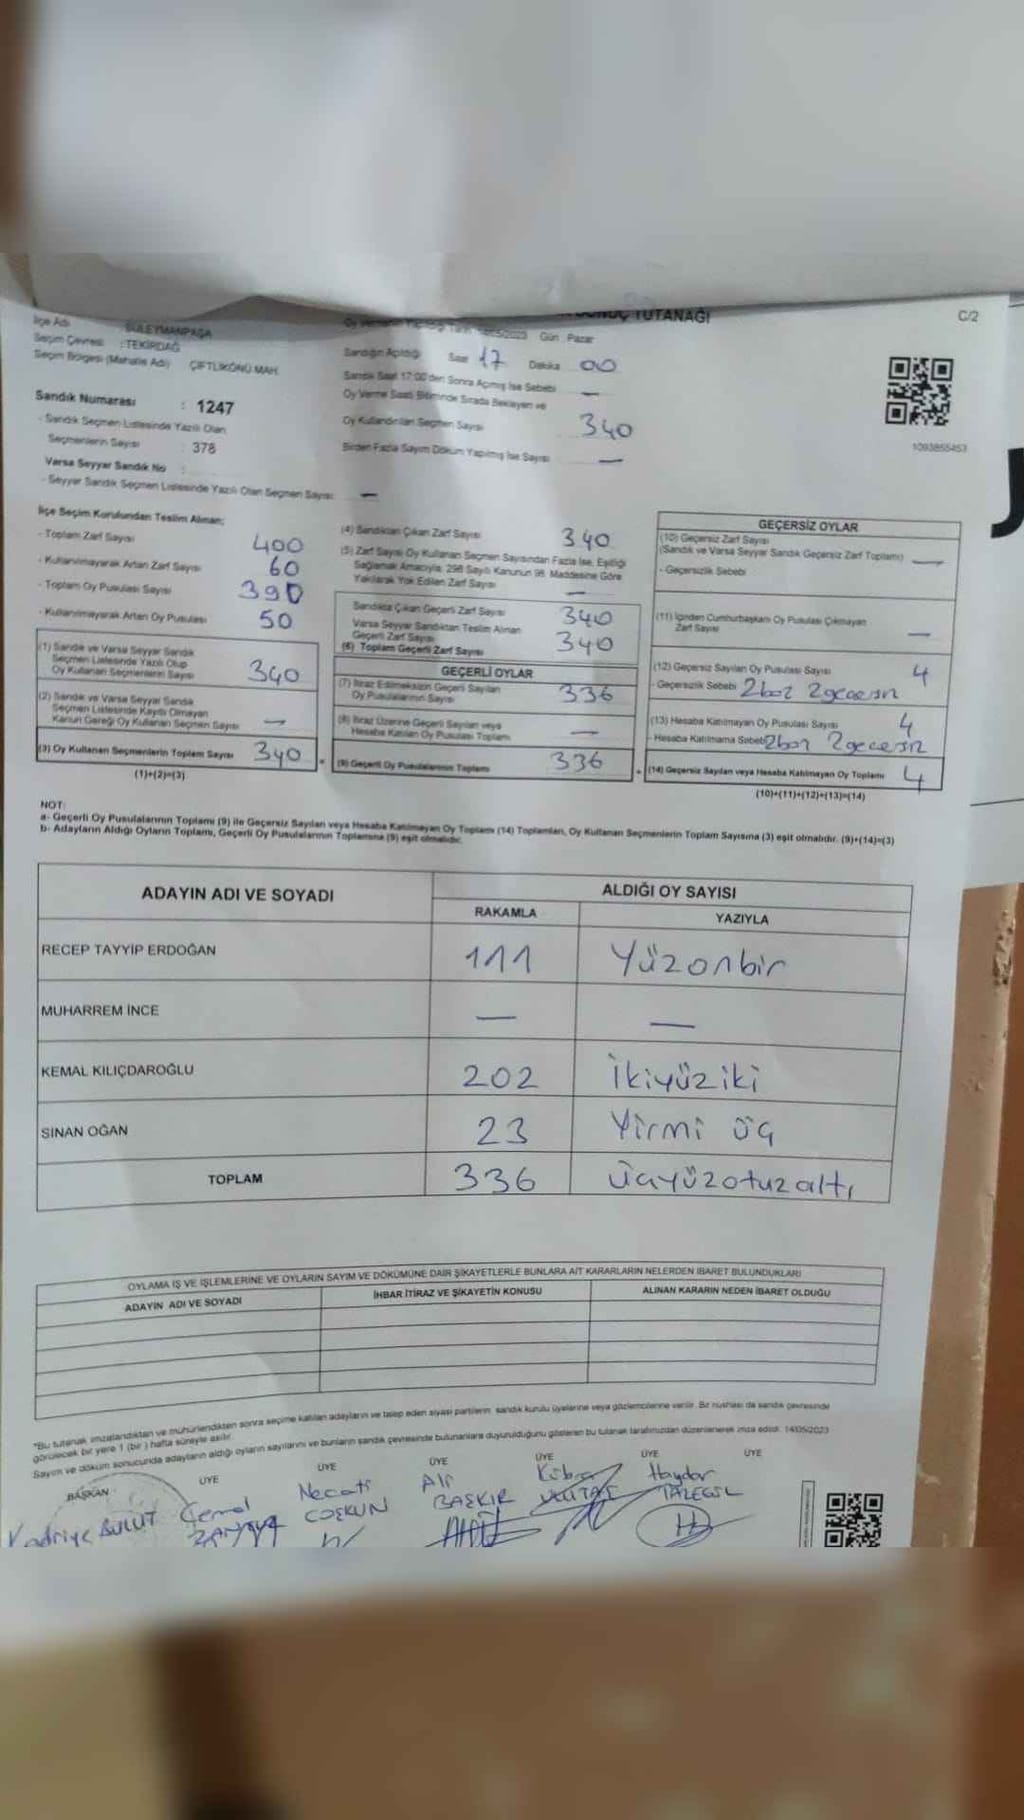 SONUÇ TUTANAĞI
C/2
İlçe Adı SÜLEYMANPAŞA
Seçim Çevresi :TEKİRDAĞ
Seçim Bölgesi (Mahalle Adı) ÇİFTLİKÖNÜ MAH.
Gün Pazar
Sandığın Açıldığı Saat 17 Dakika 00
Sandık Saat 17:00'den Sonra Açılmış İse Sebebi —
Oy Verme Saati Bitiminde Sırada Bekleyen ve
Oy Kullandırılan Seçmen Sayısı 340
Birden Fazla Sayım Döküm Yapılmış İse Sayısı —
Sandık Numarası : 1247
- Sandık Seçmen Listesinde Yazılı Olan
Seçmenlerin Sayısı : 378
Varsa Seyyar Sandık No :
- Seyyar Sandık Seçmen Listesinde Yazılı Olan Seçmen Sayısı: —
1093855453
İlçe Seçim Kurulundan Teslim Alınan;
- Toplam Zarf Sayısı 400
- Kullanılmayarak Artan Zarf Sayısı 60
- Toplam Oy Pusulası Sayısı 390
- Kullanılmayarak Artan Oy Pusulası 50
(1) Sandık ve Varsa Seyyar Sandık
Seçmen Listesinde Yazılı Olup
Oy Kullanan Seçmenlerin Sayısı 340
(2) Sandık ve Varsa Seyyar Sandık
Seçmen Listesinde Kayıtlı Olmayan
Kanun Gereği Oy Kullanan Seçmen Sayısı —
(3) Oy Kullanan Seçmenlerin Toplam Sayısı 340
(1)+(2)=(3)
(4) Sandıktan Çıkan Zarf Sayısı 340
(5) Zarf Sayısı Oy Kullanan Seçmen Sayısından Fazla İse, Eşitliği
Sağlamak Amacıyla, 298 Sayılı Kanunun 98. Maddesine Göre
Yakılarak Yok Edilen Zarf Sayısı —
Sandıkta Çıkan Geçerli Zarf Sayısı 340
Varsa Seyyar Sandıktan Teslim Alınan
Geçerli Zarf Sayısı
(6) Toplam Geçerli Zarf Sayısı 340
GEÇERLİ OYLAR
(7) İtiraz Edilmeksizin Geçerli Sayılan
Oy Pusulalarının Sayısı 336
(8) İtiraz Üzerine Geçerli Sayılan veya
Hesaba Katılan Oy Pusulası Toplamı —
(9) Geçerli Oy Pusulalarının Toplamı 336
GEÇERSİZ OYLAR
(10) Geçersiz Zarf Sayısı
(Sandık ve Varsa Seyyar Sandık Geçersiz Zarf Toplamı) —
- Geçersizlik Sebebi
(11) İçinden Cumhurbaşkanı Oy Pusulası Çıkmayan
Zarf Sayısı —
(12) Geçersiz Sayılan Oy Pusulası Sayısı 4
- Geçersizlik Sebebi 2boz 2gecersiz
(13) Hesaba Katılmayan Oy Pusulası Sayısı 4
- Hesaba Katılmama Sebebi 2boz 2gecersiz
(14) Geçersiz Sayılan veya Hesaba Katılmayan Oy Toplamı 4
(10)+(11)+(12)+(13)=(14)
NOT:
a- Geçerli Oy Pusulalarının Toplamı (9) ile Geçersiz Sayılan veya Hesaba Katılmayan Oy Toplamı (14) Toplamları, Oy Kullanan Seçmenlerin Toplam Sayısına (3) eşit olmalıdır. (9)+(14)=(3)
b- Adayların Aldığı Oyların Toplamı, Geçerli Oy Pusulalarının Toplamına (9) eşit olmalıdır.
ADAYIN ADI VE SOYADI
ALDIĞI OY SAYISI
RAKAMLA YAZIYLA
RECEP TAYYİP ERDOĞAN 111 Yüzonbir
MUHARREM İNCE — —
KEMAL KILIÇDAROĞLU 202 İkiyüziki
SİNAN OĞAN 23 Yirmi üç
TOPLAM 336 üçyüzotuzaltı
OYLAMA İŞ VE İŞLEMLERİNE VE OYLARIN SAYIM VE DÖKÜMÜNE DAİR ŞİKAYETLERLE BUNLARA AİT KARARLARIN NELERDEN İBARET BULUNDUKLARI
ADAYIN ADI VE SOYADI İHBAR İTİRAZ VE ŞİKAYETİN KONUSU ALINAN KARARIN NEDEN İBARET OLDUĞU
*Bu tutanak imzalandıktan ve mühürlendikten sonra seçime katılan adayların ve talep eden siyasi partilerin sandık kurulu üyelerine veya gözlemcilerine verilir. Bir nüshası da sandık çevresinde
görülecek bir yere 1 (bir) hafta süreyle asılır.
Sayım ve döküm sonucunda adayların aldığı oyların sayılarını ve bunların sandık çevresinde bulunanlara duyurulduğunu gösteren bu tutanak tarafımızdan düzenlenerek imza edildi. 14/05/2023
BAŞKAN ÜYE ÜYE ÜYE ÜYE ÜYE ÜYE
Kadriye BULUT
Cemal
Necati COŞKUN
Ali BAŞKIR
Kübra
Haydar